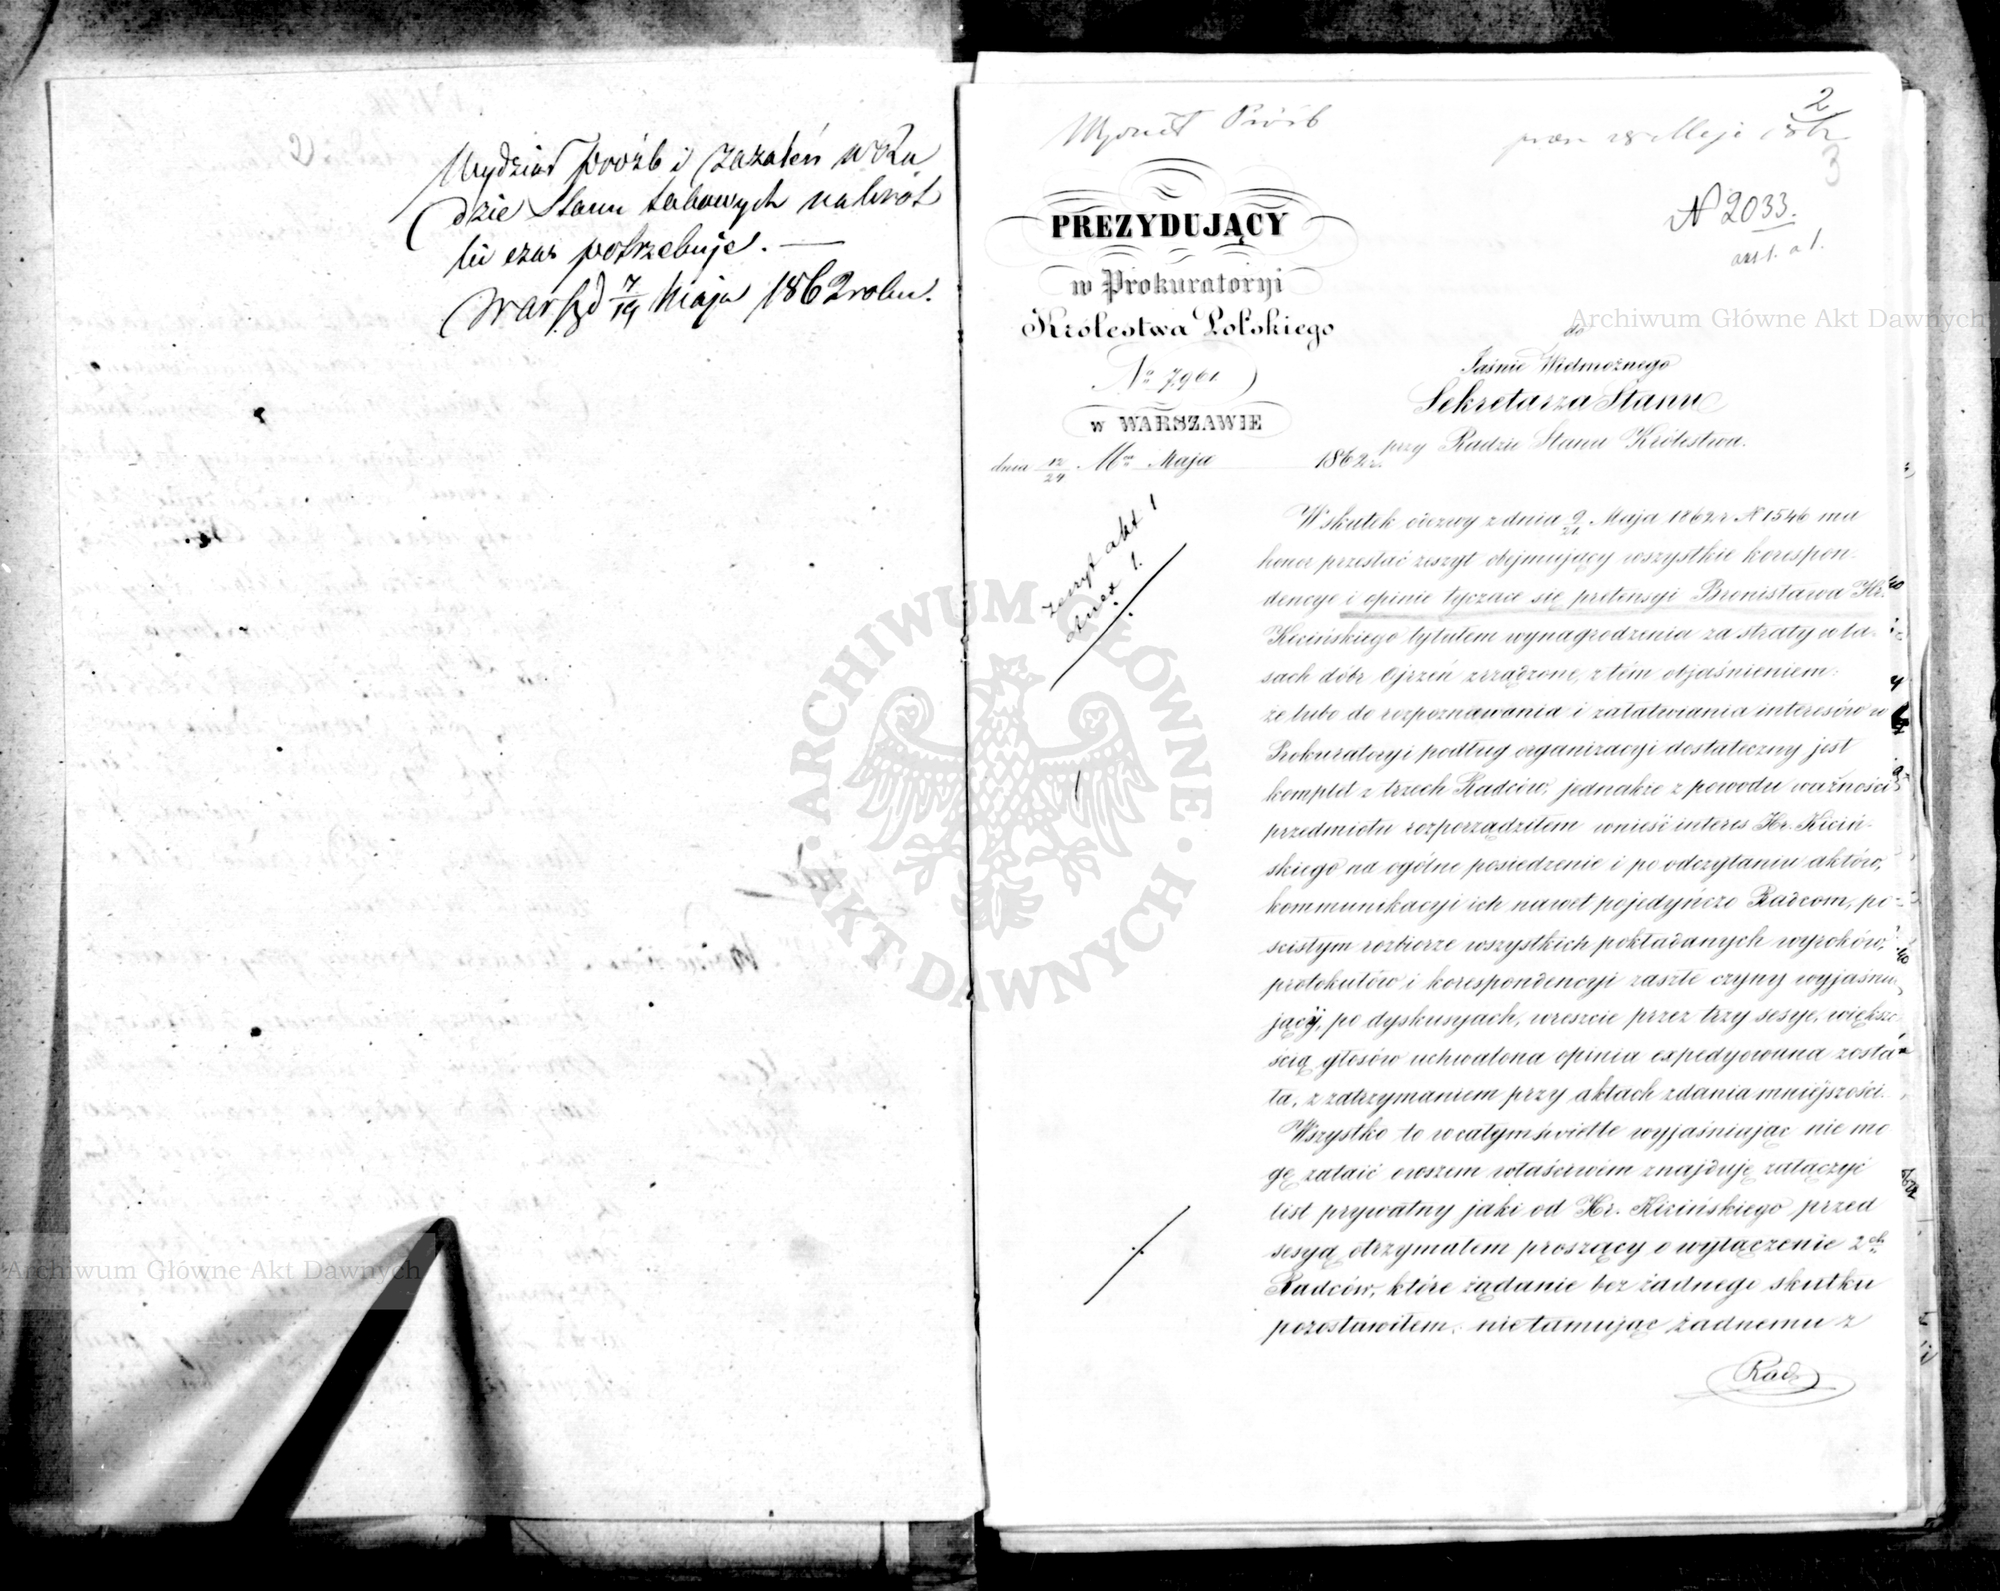 Wydział Próśb i Zażaleń w Ra
dzie Stanu takowych na krót
ki czas potrzebuje. —
Warsz d 7/19 Maja 1862 roku.
Wydział Próśb
2
3
N 2033.
PREZYDUJĄCY
w Prokuratoryi
Królestwa Polskiego
No 7961
w WARSZAWIE
dnia 12/24 Maja 1862 r.
do
Jaśnie Wielmożnego
Sekretarza Stanu
przy Radzie Stanu Królestwa.
zeszyt akt 1
anex 1.
W skutek odezwy z dnia 9/21 Maja 1862 r N 1546 ma
honor przesłać zeszyt obejmujący wszystkie korespon-
dencye i opinie tyczące się pretensyi Bronisława Hr.
Kicińskiego tytułem wynagrodzenia za straty w la-
sach dóbr Ojrzeń zrządzone, z tém objaśnieniem:
że lubo do rozpoznawania i załatwiania interesów w
Prokuratoryi podług organizacyi dostateczny jest
komplet z trzech Radców, jednakże z powodu ważności
przedmiotu rozporządziłem wnieść interes Hr. Kiciń-
skiego na ogólne posiedzenie i po odczytaniu aktów,
kommunikacyi ich nawet pojedyńczo Radcom, po
ścisłym rozbiorze wszystkich pokładanych wyroków,
protokułów i korespondencyi zaszłe czyny wyjaśnia
jącÿ, po dyskusyach, wreszcie przez trzy sesye, większo
ścią głosów uchwalona opinia expedyowana zosta
ła, z zatrzymaniem przy aktach zdania mniejszości.
Wszystko to w całym świetle wyjaśniając nie mo
gę zataić owszem właściwém znajduję załączyć
list prywatny jaki od Hr. Kicińskiego przed
sesyą otrzymałem proszący o wyłączenie 2ch
Radców, które żądanie bez żadnego skutku
pozostawiłem, nie tamując żadnemu z
Rad
Archiwum Główne Akt Dawnych
Archiwum Główne Akt Dawnych
ARCHIWUM GŁÓWNE · AKT DAWNYCH ·